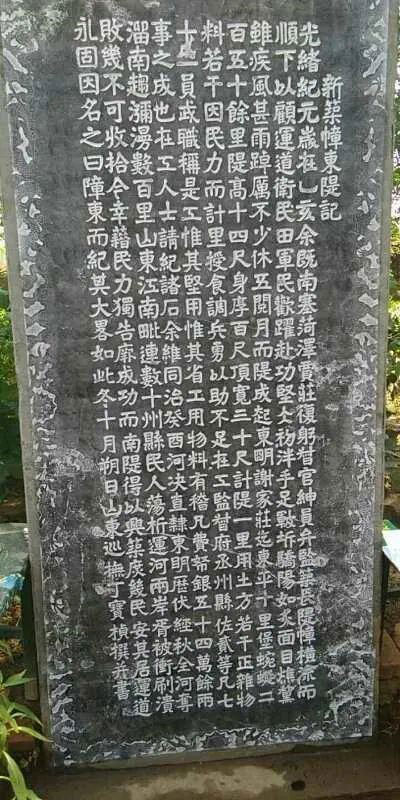 新築障東隄記
光緒紀元歲在乙亥余既南塞菏澤賈莊復躬督官紳員弁監築長隄障橫流而
順下以顧運道衛民田軍民歡躍赴功堅仌初泮手足皸坼驕陽如炙面目焦黧
雖疾風甚雨踔厲不少休五閱月而隄成起東明謝家莊迄東平十里堡蜿蜒二
百五十餘里隄高十四尺身厚百尺頂寬三十尺計隄一里用土方若干正雜物
料若干因民力而計里授食調兵勇以助不足在工監督府丞州縣佐貳等凡七
十一員武職稱是工惟其堅用惟其省工用物料有稽凡費帑銀五十四萬餘兩
事之成也在工人士請紀諸石余維同治癸酉河決直隸東明歷伏經秋全河奪
溜南趨瀰漫數百里山東江南毗連數十州縣民人蕩析運河兩岸胥被衝刷潰
敗幾不可收拾今幸藉民力獨告厥成功而南隄得以興築庶幾民安其居運道
永固因名之曰障東而紀其大畧如此冬十月朔日山東巡撫丁寶楨撰并書